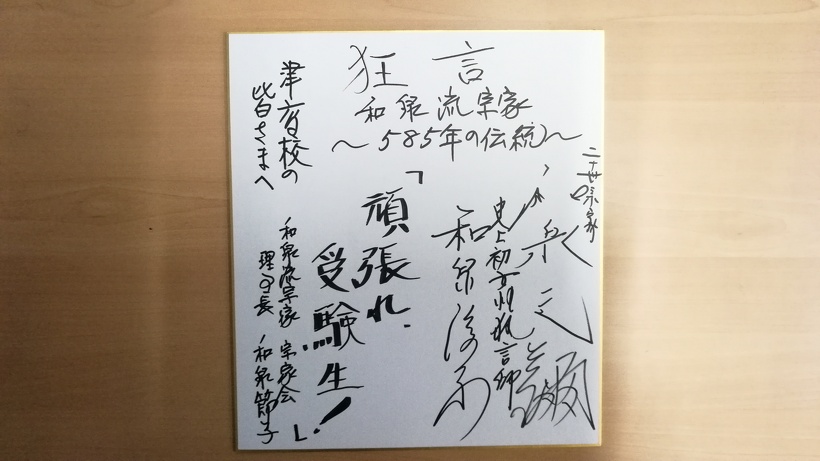 狂言
和泉流宗家
～585年の伝統～
二十世宗家
和泉元彌
史上初女性狂言師
和泉淳子
「頑張れ
受験生！」
津高校の
皆さまへ
和泉流宗家 宗家会
理事長 和泉節子